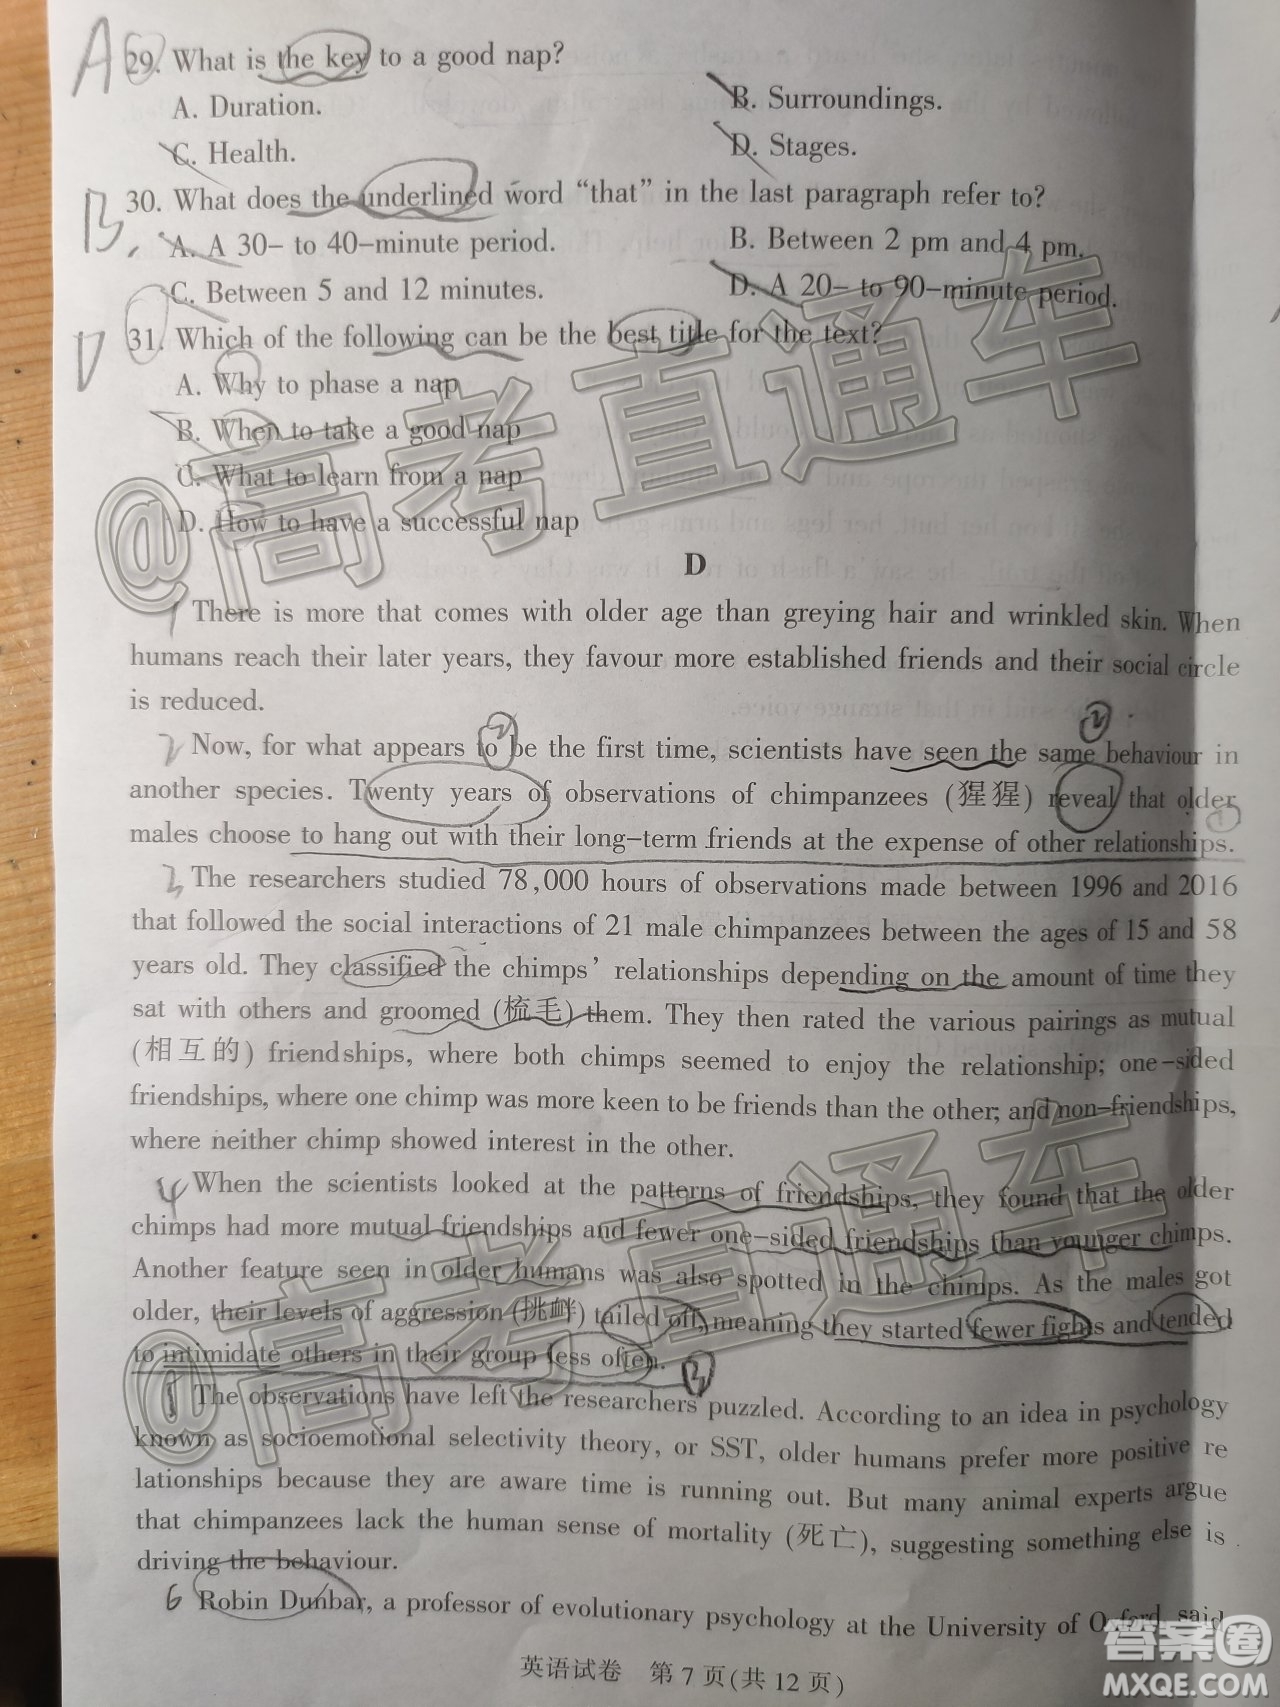 A 29. What is the key to a good nap?
A. Duration.
B. Surroundings.
C. Health.
D. Stages.
B. 30. What does the underlined word “that” in the last paragraph refer to?
A. A 30- to 40-minute period.
B. Between 2 pm and 4 pm.
C. Between 5 and 12 minutes.
D. A 20- to 90-minute period.
D 31. Which of the following can be the best title for the text?
A. Why to phase a nap
B. When to take a good nap
C. What to learn from a nap
D. How to have a successful nap
D
1 There is more that comes with older age than greying hair and wrinkled skin. When
humans reach their later years, they favour more established friends and their social circle
is reduced.
2 Now, for what appears to be the first time, scientists have seen the same behaviour in
another species. Twenty years of observations of chimpanzees (猩猩) reveal that older
males choose to hang out with their long-term friends at the expense of other relationships.
3 The researchers studied 78,000 hours of observations made between 1996 and 2016
that followed the social interactions of 21 male chimpanzees between the ages of 15 and 58
years old. They classified the chimps’ relationships depending on the amount of time they
sat with others and groomed (梳毛) them. They then rated the various pairings as mutual
(相互的) friendships, where both chimps seemed to enjoy the relationship; one-sided
friendships, where one chimp was more keen to be friends than the other; and non-friendships,
where neither chimp showed interest in the other.
4 When the scientists looked at the patterns of friendships, they found that the older
chimps had more mutual friendships and fewer one-sided friendships than younger chimps.
Another feature seen in older humans was also spotted in the chimps. As the males got
older, their levels of aggression (挑衅) tailed off, meaning they started fewer fights and tended
to intimidate others in their group less often.
The observations have left the researchers puzzled. According to an idea in psychology
known as socioemotional selectivity theory, or SST, older humans prefer more positive re
lationships because they are aware time is running out. But many animal experts argue
that chimpanzees lack the human sense of mortality (死亡), suggesting something else is
driving the behaviour.
6 Robin Dunbar, a professor of evolutionary psychology at the University of Oxford, said
英语试卷 第 7 页(共 12 页)
@高考直通车
@高考直通车
答案圈
MXQE.COM